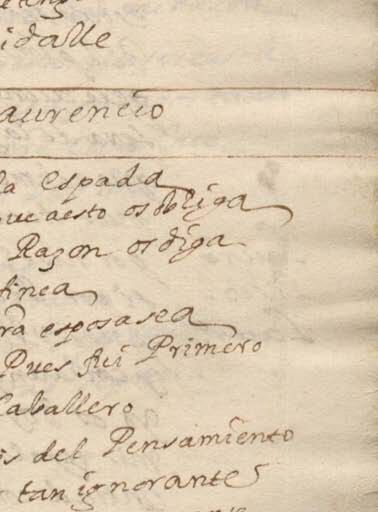 idalle
aurencio
la espada
que aesto os obliga
Razon os diga
finea
rã esposasea
Pues fui Primero
Caballero
is del Pensamiento
tan ignorante